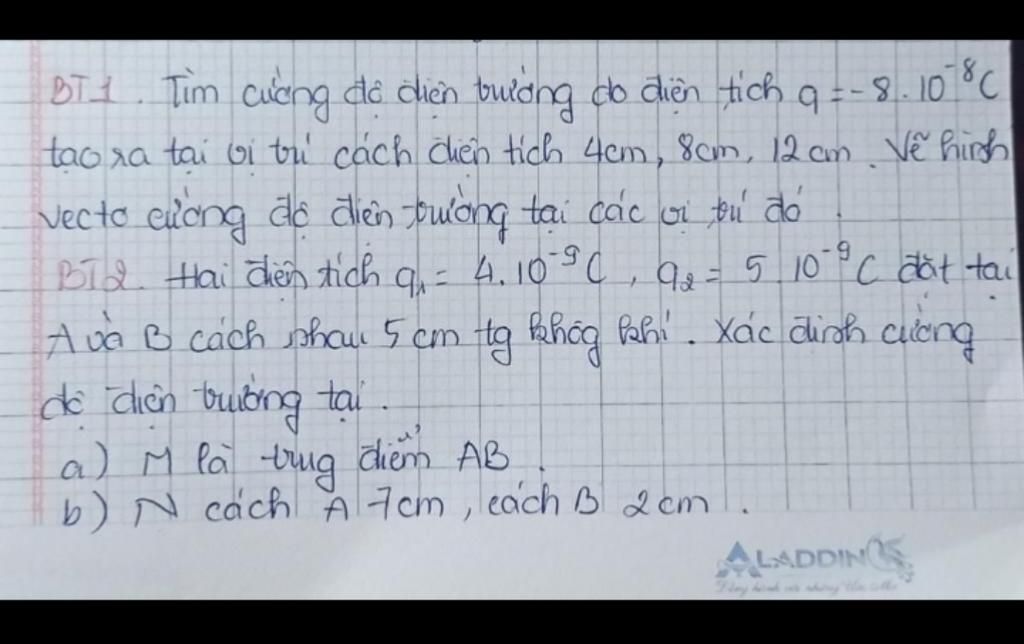 BT1. Tìm cường độ điện trường do điện tích q = -8.10⁻⁸C
tạo ra tại vị trí cách điện tích 4cm, 8cm, 12cm. Vẽ hình
vecto cường độ điện trường tại các vị trí đó.
BT2. Hai điện tích q₁ = 4.10⁻⁹C, q₂ = 5 10⁻⁹C đặt tại
A và B cách nhau 5cm tg khôg khí. Xác định cường
độ điện trường tại.
a) M là trug điểm AB.
b) N cách A 7cm, cách B 2cm.
ALADDIN